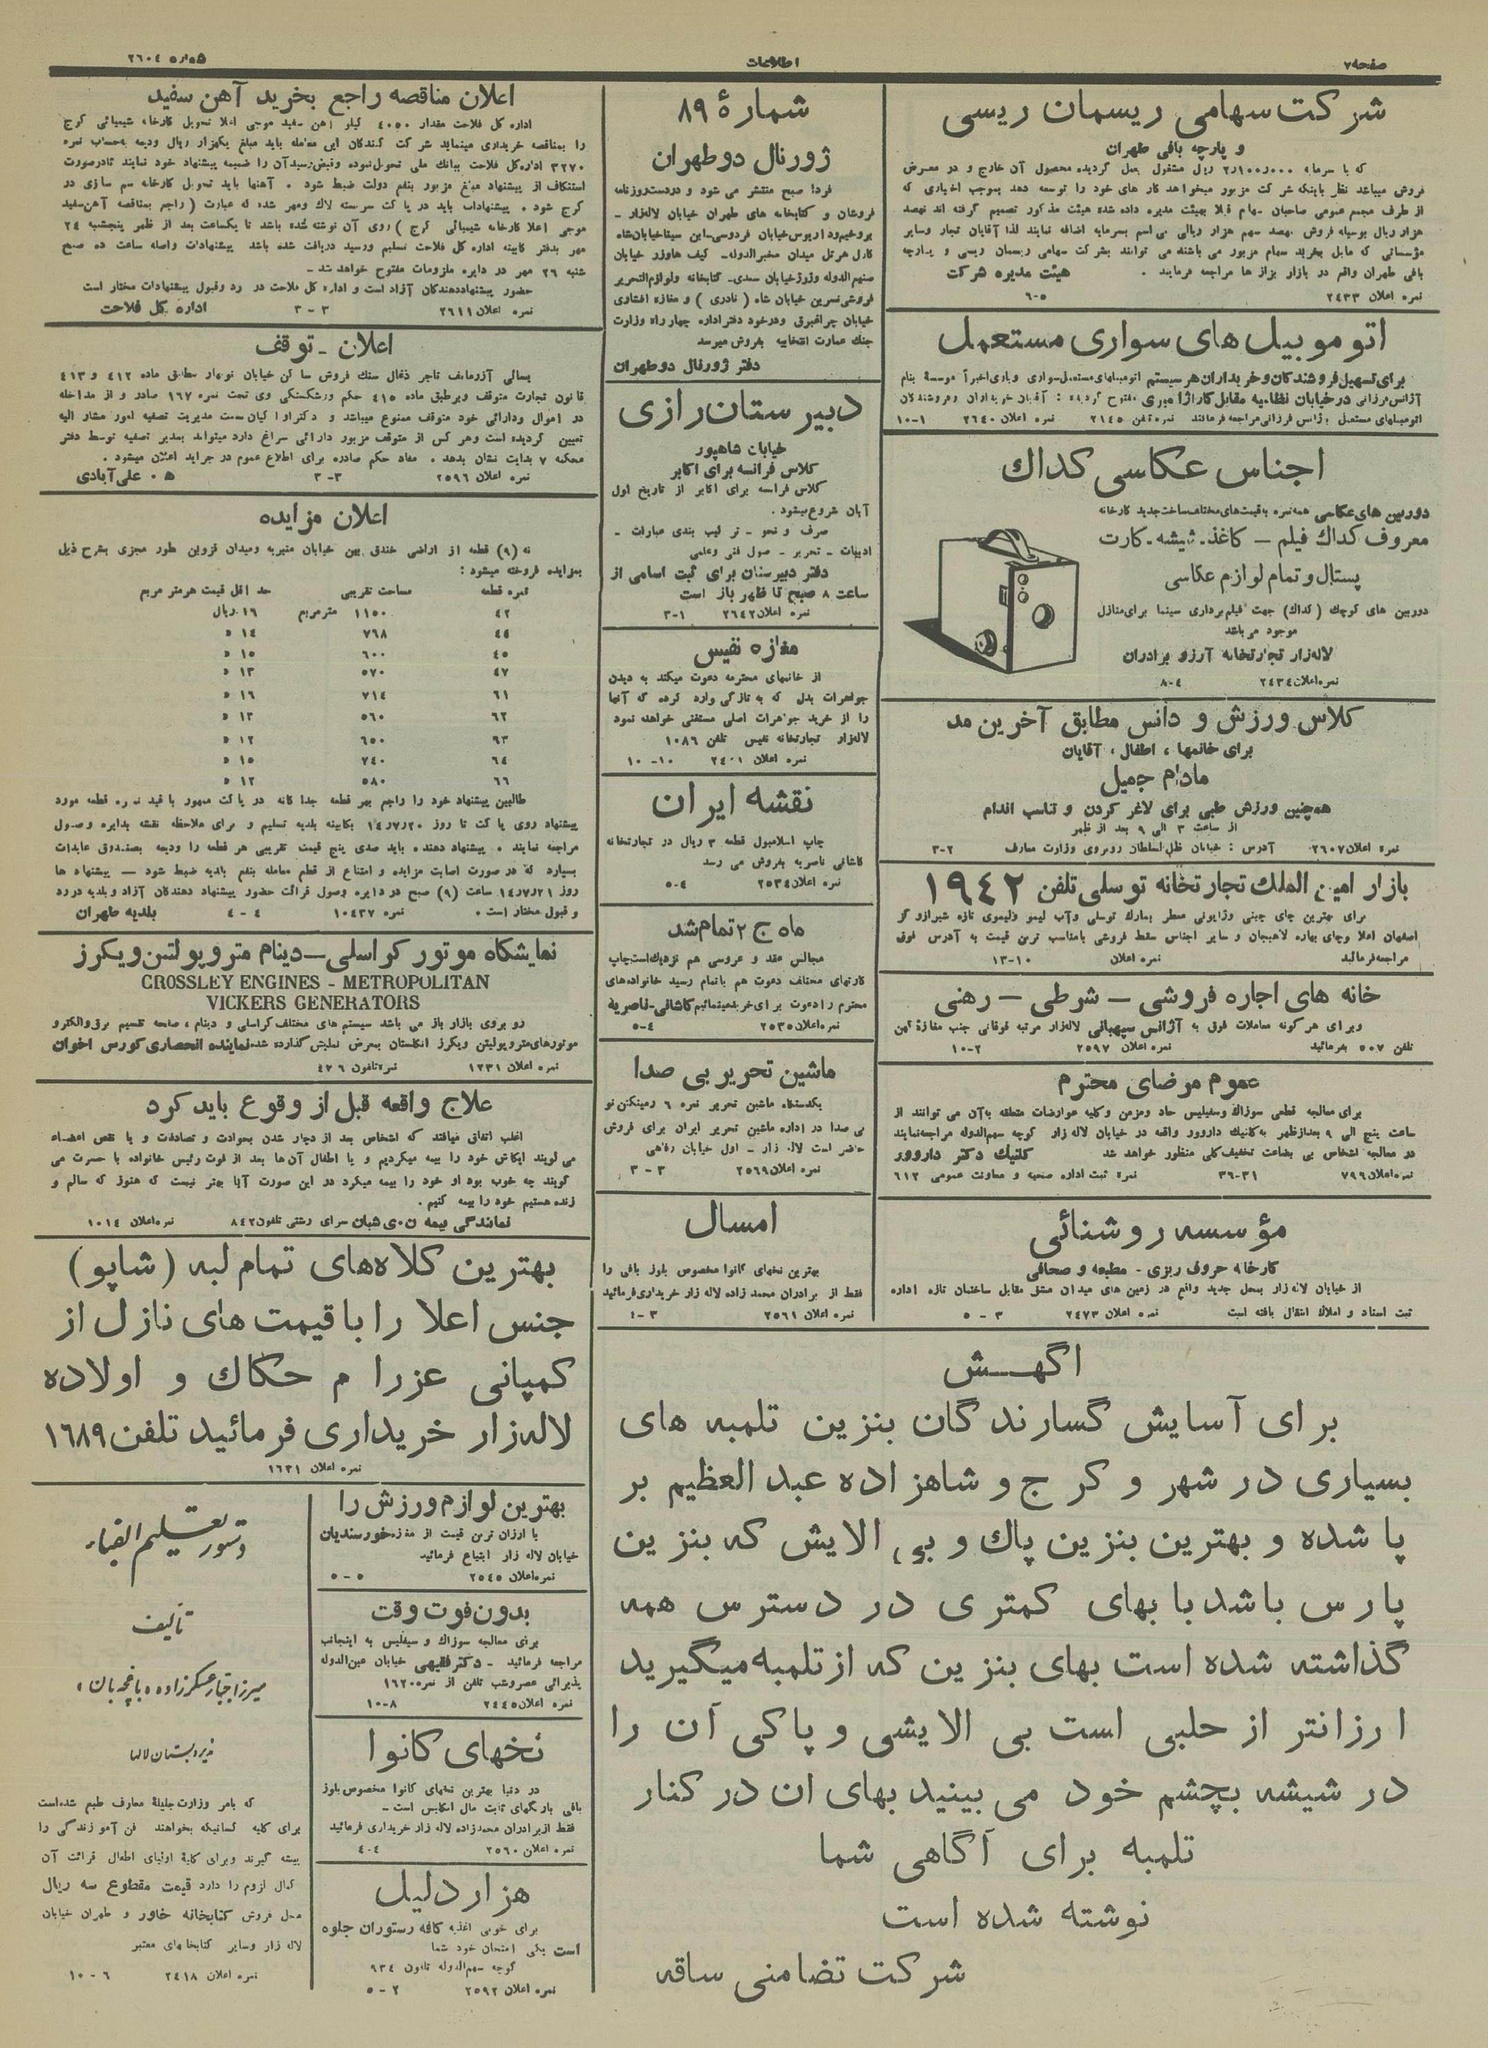 صفحه ۷
اطلاعات
شماره ۲۶۰۴
شرکت سهامی ریسمان ریسی
و پارچه بافی طهران
که با سرمایه ۲٫۱۰۰٫۰۰۰ ریال مشغول بعمل گردیده محصول آن خارج و در معرض
فروش میباشد نظر باینکه شرکت مزبور میخواهد کار های خود را توسعه دهد بموجب اختیاری که
از طرف مجمع عمومی صاحبان سهام قبلا بهیئت مدیره داده شده هیئت مذکور تصمیم گرفته اند نهصد
هزار ریال بوسیله فروش نهصد سهم هزار ریالی بی اسم بسرمایه اضافه نمایند لذا آقایان تجار وسایر
مؤسساتی که مایل بخرید سهام مزبور می باشند می توانند بشرکت سهامی ریسمان ریسی و پارچه
بافی طهران واقع در بازار بزاز ها مراجعه فرمایند . هیئت مدیره شرکت
نمره اعلان ۲۴۳۳ ۵-۶
اتوموبیل های سواری مستعمل
برای تسهیل فروشندگان و خریداران هر سیستم اتومبیلهای مستعمل سواری و باری اخیرا موسسه بنام
آژانس فرزانی در خیابان نظامیه مقابل کاراژ امیری مفتوح گردیده : آقایان خریداران و فروشندگان
اتومبیلهای مستعمل بژانس فرزانی مراجعه فرمایند نمره تلفن ۲۱۴۵ نمره اعلان ۲۶۴۰ ۱-۱۰
اجناس عکاسی کداك
دوربین های عکاسی همه نمره به قیمت های مختلف ساخت جدید کارخانه
معروف کداك فیلم - کاغذ - شیشه - کارت
پستال و تمام لوازم عکاسی
دوربین های کوچك (کداك) جهت فیلم برداری سینما برای منازل
موجود می باشد
لاله زار تجارتخانه آرزو برادران
نمره اعلان ۲۴۳۴ ۴-۸
کلاس ورزش و دانس مطابق آخرین مد
برای خانمها ، اطفال ، آقایان
مادام جمیل
همچنین ورزش طبی برای لاغر کردن و تناسب اندام
از ساعت ۳ الی ۹ بعد از ظهر
نمره اعلان ۲۶۰۷ آدرس : خیابان ظل السلطان روبروی وزارت معارف ۲-۳
بازار امین الملك تجارتخانه توسلی تلفن ۱۹۴۲
برای بهترین چای چینی وژاپونی معطر بمارك توسلی و آب لیمو ولیموی تازه شیراز و گز
اصفهان اعلا وچای بهاره لاهیجان و سایر اجناس سقط فروشی بامناسب ترین قیمت به آدرس فوق
مراجعه فرمائید نمره اعلان ۱۰-۱۳
خانه های اجاره فروشی - شرطی - رهنی
و برای هر گونه معاملات فوق به آژانس سپهبانی لاله زار مرتبه فوقانی جنب مغازه آهن
تلفن ۵۰۷ بفرمائید نمره اعلان ۲۵۹۷ ۲-۱۰
عموم مرضای محترم
برای معالجه قطعی سوزاك وسفیلیس حاد ومزمن وکلیه عوارضات متعلقه به آن می توانند از
ساعت پنج الی ۹ بعد از ظهر به کلنیك داروور واقعه در خیابان لاله زار کوچه سهم الدوله مراجعه نمایند
در معالجه اشخاص بی بضاعت تخفیف کلی منظور خواهد شد کلنیك دکتر داروور
نمره اعلان ۷۹۶ ۳۱-۳۶ نمره ثبت اداره صحیه و معاونت عمومی ۶۱۲
مؤسسه روشنائی
کارخانه حروف ریزی - مطبعه و صحافی
از خیابان لاله زار بمحل جدید واقع در زمین های میدان مشق مقابل ساختمان تازه اداره
ثبت اسناد و املاك انتقال یافته است نمره اعلان ۲۴۷۳ ۳ - ۵
شمارهٔ ۸۹
ژورنال دو طهران
فردا صبح منتشر می شود و در دست روزنامه
فروشان و کتابخانه های طهران خیابان لاله زار -
بروخیم و داریوس خیابان فردوسی - ابن سینا خیابان شاه
کارل هرتل میدان مخبرالدوله - کیف هاوزر خیابان
صنیع الدوله وژوژ خیابان سعدی - کتابخانه ولوازم التحریر
فروشی نسرین خیابان شاه ( نادری ) و مغازه افشاری
خیابان چراغبرق و در خود دفتر اداره چهار راه وزارت
جنك عمارت انتخابیه بفروش میرسد
دفتر ژورنال دو طهران
دبیرستان رازی
خیابان شاهپور
کلاس فرانسه برای اکابر
کلاس فرانسه برای اکابر از تاریخ اول
آبان شروع میشود .
صرف و نحو - ترکیب بندی عبارات -
ادبیات - تحریر - اصول فنی وعلمی
دفتر دبیرستان برای ثبت اسامی از
ساعت ۸ صبح تا ظهر باز است
نمره اعلان ۲۶۴۲ ۱-۳
مغازه نفیس
از خانمهای محترمه دعوت میکند به دیدن
جواهرات بدل که به تازگی وارد کرده که آنها
را از خرید جواهرات اصلی مستغنی خواهد نمود
لاله زار تجارتخانه نفیس تلفن ۱۰۸۶
نمره اعلان ۲۴۰۱ ۱۰-۱۰
نقشه ایران
چاپ اسلامبول قطعه ۳ ریال در تجارتخانه
کاشانی ناصریه بفروش می رسد
نمره اعلان ۲۵۳۴ ۴-۵
ماه ج ۲ تمام شد
مجالس عقد و عروسی هم نزدیك است چاپ
کارتهای مختلف دعوت هم باتمام رسید خانواده های
محترم را دعوت برای خرید مینمائیم کاشانی - ناصریه
نمره اعلان ۲۵۳۵ ۴-۵
ماشین تحریر بی صدا
یکدستگاه ماشین تحریر نمره ۶ رمینگتن نو
بی صدا در اداره ماشین تحریر ایران برای فروش
حاضر است لاله زار - اول خیابان رفاهی
نمره اعلان ۲۵۶۹ ۳ - ۳
امسال
بهترین نخهای کانوا مخصوص بلوز بافی را
فقط از برادران محمد زاده لاله زار خریداری فرمائید
نمره اعلان ۲۵۶۱ ۳-۱
اگهـش
برای آسایش گسارندگان بنزین تلمبه های
بسیاری در شهر و کرج و شاهزاده عبد العظیم بر
پا شده و بهترین بنزین پاك و بی الایش که بنزین
پارس باشد با بهای کمتری در دسترس همه
گذاشته شده است بهای بنزین که از تلمبه میگیرید
ارزانتر از حلبی است بی الایشی و پاکی آن را
در شیشه بچشم خود می بینید بهای ان در کنار
تلمبه برای آگاهی شما
نوشته شده است
شرکت تضامنی ساقه
اعلان مناقصه راجع بخرید آهن سفید
اداره کل فلاحت مقدار ۴۰۵۰ کیلو آهن سفید موجی اعلا تحویل کارخانه شیمیائی کرج
را بمناقصه خریداری مینماید شرکت کنندگان این معامله باید مبلغ یکهزار ریال ودیعه بحساب نمره
۳۲۷۰ اداره کل فلاحت ببانك ملی تحویل نموده و قبض رسید آن را ضمیمه پیشنهاد خود نمایند تادرصورت
استنکاف از پیشنهاد مبلغ مزبور بنفع دولت ضبط شود . آهنها باید تحویل کارخانه سم سازی در
کرج شود . پیشنهادات باید در پاکت سربسته لاك ومهر شده که عبارت ( راجع بمناقصه آهن سفید
موجی اعلا کارخانه شیمیائی کرج ) روی آن نوشته شده باشد تا یکساعت بعد از ظهر پنجشنبه ۲۴
مهر بدفتر کابینه اداره کل فلاحت تسلیم ورسید دریافت شده باشد پیشنهادات واصله ساعت ده صبح
شنبه ۲۶ مهر در دایره ملزومات مفتوح خواهد شد -
حضور پیشنهاد دهندگان آزاد است و اداره کل فلاحت در رد وقبول پیشنهادات مختار است
نمره اعلان ۲۶۱۱ ۳ - ۳ اداره کل فلاحت
اعلان - توقف
یسائی آذرماهف تاجر ذغال سنك فروش ساکن خیابان نوبهار مطابق ماده ۴۱۲ و ۴۱۳
قانون تجارت متوقف وبرطبق ماده ۴۱۵ حکم ورشکستگی وی تحت نمره ۱۶۷ صادر و از مداخله
در اموال ودارائی خود متوقف ممنوع میباشد و دکتر اولکیان بسمت مدیریت تصفیه امور مشار الیه
تعیین گردیده است وهر کس از متوقف مزبور دارائی سراغ دارد میتواند بمدیر تصفیه توسط دفتر
محکمه ۷ بدایت نشان بدهد . مفاد حکم صادره برای اطلاع عموم در جراید اعلان میشود .
نمره اعلان ۲۵۹۶ ۳-۳ ه . علی آبادی
اعلان مزایده
نه (۹) قطعه از اراضی خندق بین خیابان منیریه ومیدان قزوین طور مجزی بشرح ذیل
بمزایده فروخته میشود :
نمره قطعه مساحت تقریبی حد اقل قیمت هر متر مربع
۴۲ ۱۱۵۰ متر مربع ۱۶ ریال
۴۴ ۷۶۸ ۱۴ »
۴۵ ۶۰۰ ۱۵ »
۴۷ ۵۷۰ ۱۳ »
۶۱ ۷۱۴ ۱۶ »
۶۲ ۵۶۰ ۱۲ »
۶۳ ۶۵۰ ۱۲ »
۶۴ ۷۴۰ ۱۵ »
۶۶ ۵۸۰ ۱۲ »
طالبین پیشنهاد خود را راجع بهر قطعه جداگانه در پاکت ممهور با قید نمره قطعه مورد
پیشنهاد روی پاکت تا روز ۱۴/۷/۲۰ بکابینه بلدیه تسلیم و برای ملاحظه نقشه بدایره وصول
مراجعه نمایند . پیشنهاد دهنده باید صدی پنج قیمت تقریبی هر قطعه را ودیعه بصندوق عایدات
بسپارد که در صورت اصابت مزایده و امتناع از قطع معامله بنفع بلدیه ضبط شود - پیشنهاد ها
روز ۱۴/۷/۲۱ ساعت (۹) صبح در دایره وصول قرائت حضور پیشنهاد دهندگان آزاد و بلدیه در رد
و قبول مختار است . نمره ۱۰۴۳۷ ۴ - ۴ بلدیه طهران
نمایشگاه موتور کراسلی - دینام متروپولتن ویکرز
CROSSLEY ENGINES - METROPOLITAN
VICKERS GENERATORS
رو بروی بازار باز می باشد سیستم های مختلف کراسلی و دینام ، صفحه تقسیم برق والکترو
موتورهای متروپولیتن ویکرز انگلستان بمعرض نمایش گذارده شده نماینده انحصاری کورس اخوان
نمره اعلان ۱۲۳۱ نمره تلفون ۴۲۶
علاج واقعه قبل از وقوع باید کرد
اغلب اتفاق میافتد که اشخاص بعد از دچار شدن بحوادث و تصادفات و یا نقص اعضاء
می گویند ایکاش خود را بیمه میکردیم و یا اطفال آن ها بعد از فوت رئیس خانواده با حسرت می
گویند چه خوب بود او خود را بیمه میکرد در این صورت آیا بهتر نیست که هنوز که سالم و
زنده هستیم خود را بیمه کنیم .
نمایندگی بیمه ن . ی شبان سرای رشتی تلفون ۸۴۲ نمره اعلان ۱۰۱۴
بهترین کلاه های تمام لبه (شاپو)
جنس اعلا را با قیمت های نازل از
کمپانی عزرا م حکاك و اولاده
لاله زار خریداری فرمائید تلفن ۱۶۸۹
نمره اعلان ۱۶۳۱
بهترین لوازم ورزش را
با ارزان ترین قیمت از مغازه خورسندیان
خیابان لاله زار ابتیاع فرمائید
نمره اعلان ۲۵۴۵ ۵-۵
بدون فوت وقت
برای معالجه سوزاك و سیفلیس به اینجانب
مراجعه فرمائید - دکتر فقیهی خیابان عین الدوله
پذیرائی عصر و شب تلفن از نمره ۱۶۲۰
نمره اعلان ۲۴۴۵ ۸-۱۰
نخهای کانوا
در دنیا بهترین نخهای کانوا مخصوص بلوز
بافی با رنگهای ثابت مال انگلیس است -
فقط از برادران محمدزاده لاله زار خریداری فرمائید
نمره اعلان ۲۵۶۰ ۴-۴
هزار دلیل
برای خوبی اغذیه کافه رستوران جلوه
است یکی امتحان خود شما
کوچه سهم الدوله تلفون ۹۳۴
نمره اعلان ۲۵۹۲ ۲ - ۵
دستور تعلیم الفباء
تألیف
میرزا جبار عسکرزاده «باغچه بان»
مدیر دبستان لالها
که بامر وزارت جلیلهٔ معارف طبع شده است
برای کلیه کسانیکه بخواهند فن آموزندگی را
پیشه گیرند و برای کلیهٔ اولیای اطفال قرائت آن
کمال لزوم را دارد قیمت مقطوع سه ریال
محل فروش کتابخانه خاور و طهران خیابان
لاله زار وسایر کتابخانهای معتبر
نمره اعلان ۲۴۱۸ ۶ - ۱۰